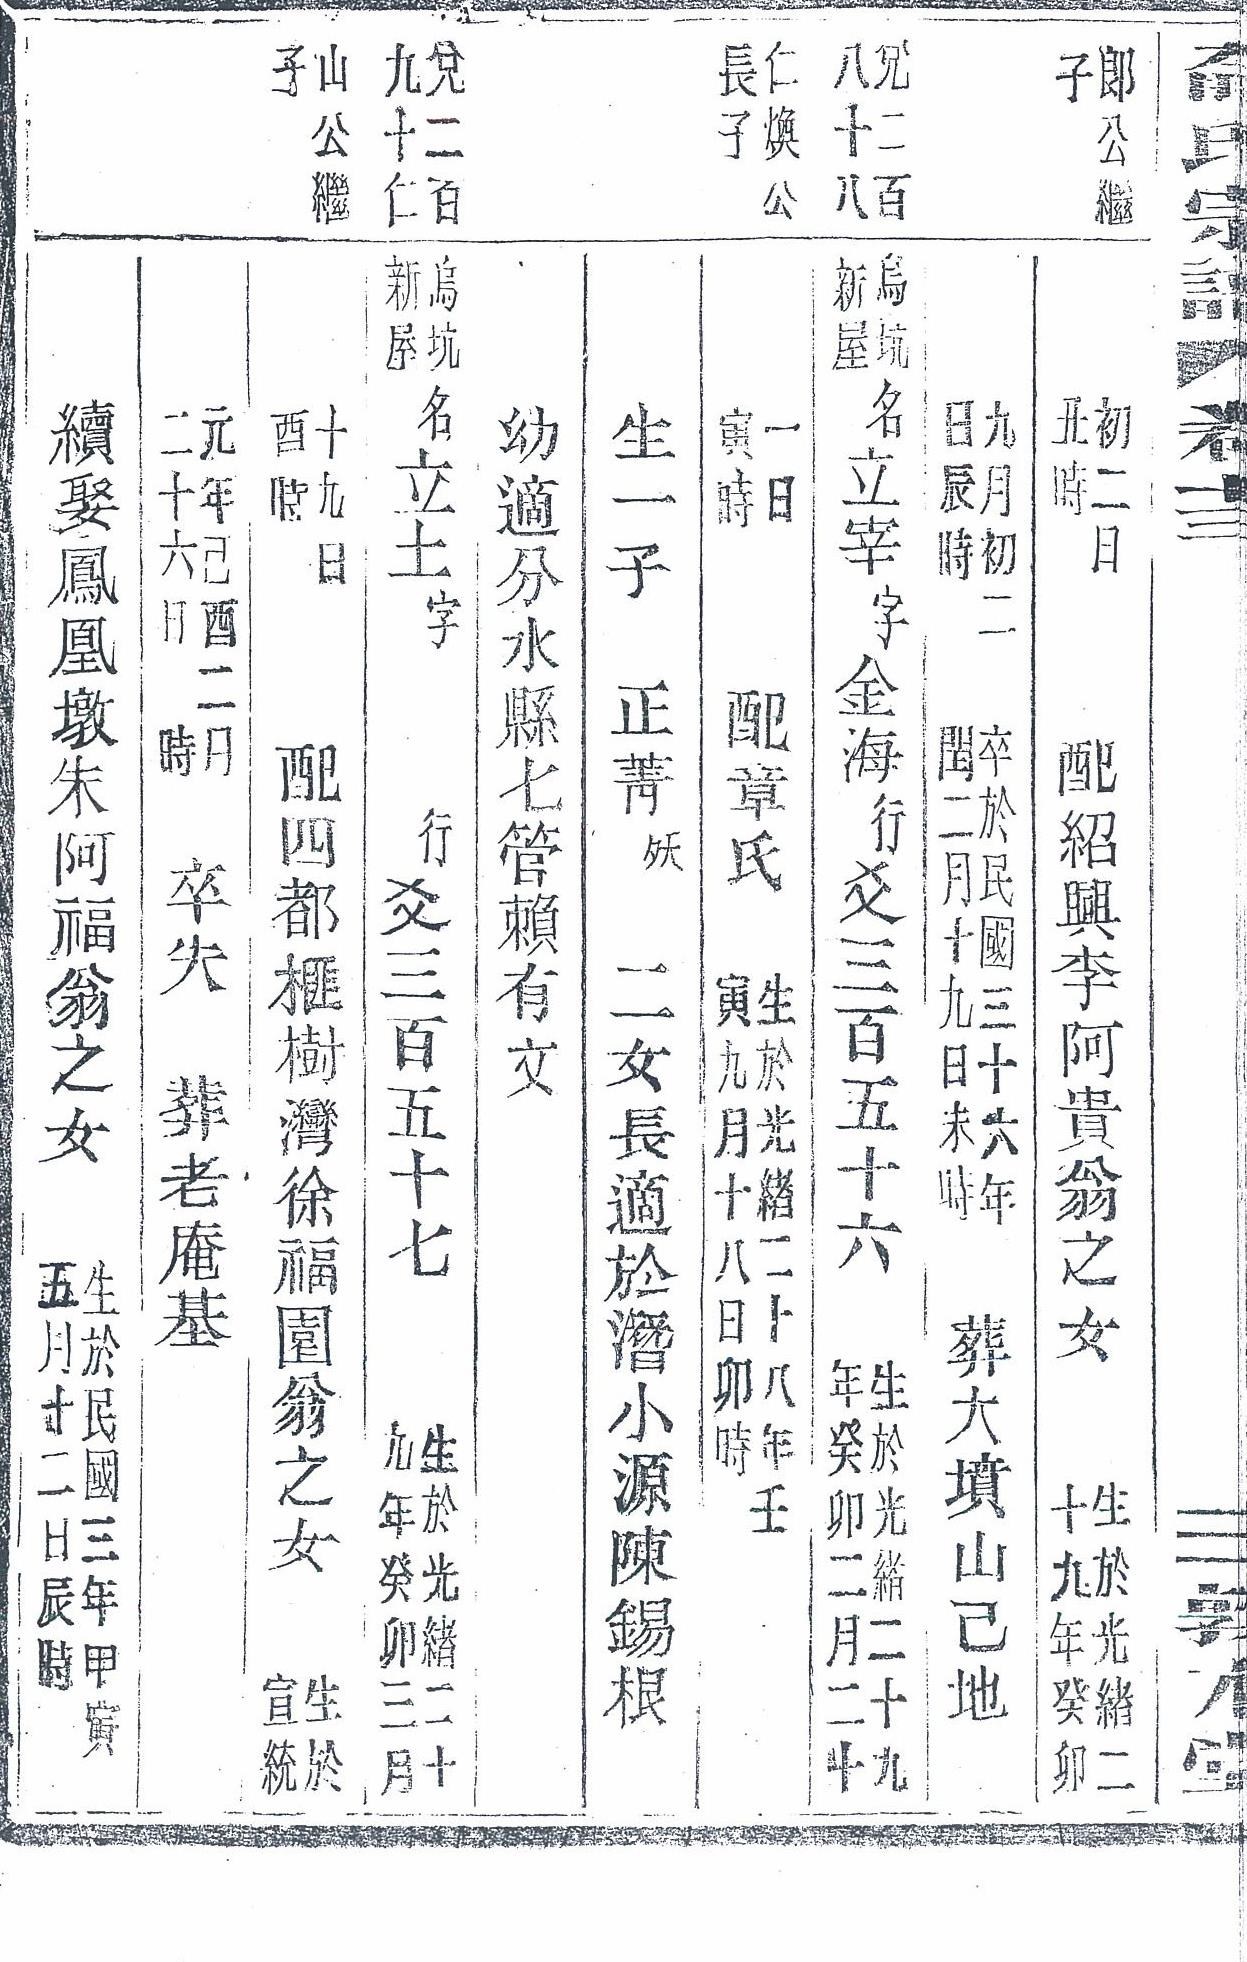 氏宗譜 卷三
郎公繼子
初二日丑時 配紹興李阿貴翁之女 生於光緒二十九年癸卯
九月初二日辰時 卒於民國三十六年閏二月十九日未時 葬大墳山己地
兌二百八十八 烏坑新屋 名立宰字金海行爻三百五十六 生於光緒二十九年癸卯二月二十
仁煥公長子 一日寅時 配章氏 生於光緒二十八年壬寅九月十八日卯時
生一子 正菁 殀 二女長適於潛小源陳錫根
幼適分水縣七管賴有文
兌二百九十仁 烏坑新屋 名立土字 行爻三百五十七 生於光緒二十九年癸卯三月
山公繼子 十九日酉時 配四都榧樹灣徐福園翁之女 生於宣統
元年己酉二月二十六日 時 卒失 葬老庵基
續娶鳳凰墩朱阿福翁之女 生於民國三年甲寅五月十二日辰時